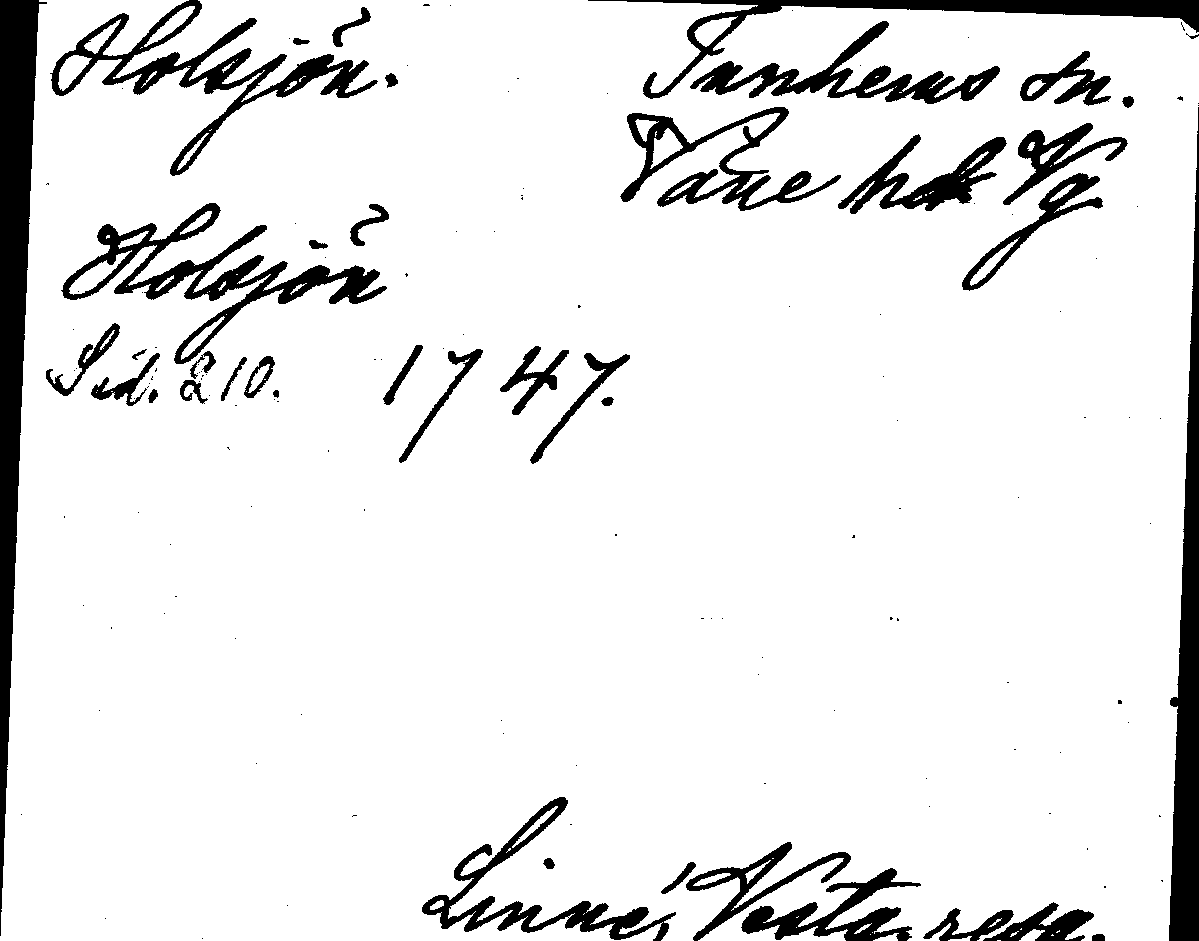 Holsjön.
Tunhems sn.
Väne hd Vg.
Holsjön
Sid. 210. 1747.
Linné, Vestg. resa.